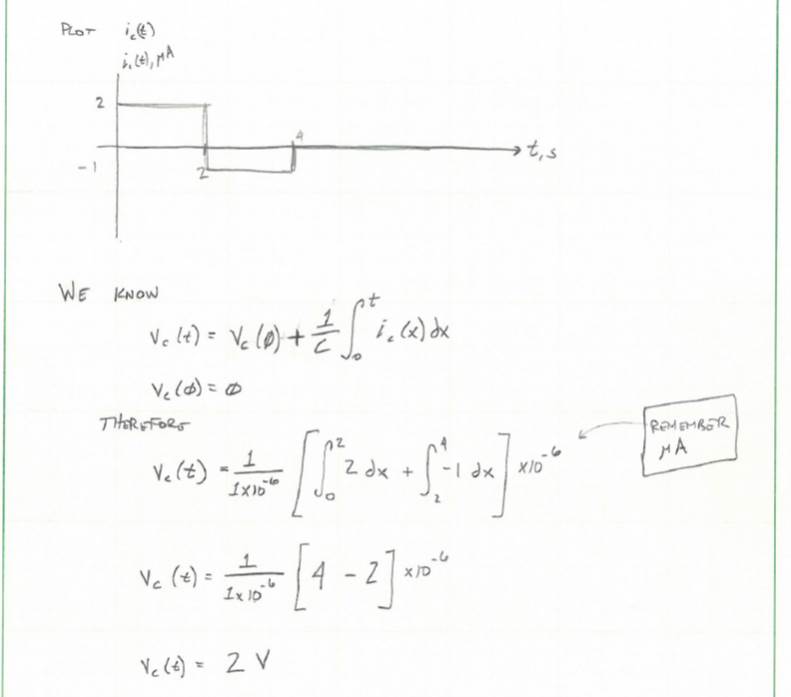 PLOT i_c(t)
i_c(t), μA
2
4
t, s
-1
2
WE KNOW
V_c(t) = V_c(∅) + 1/C ∫_0^t i_c(x) dx
V_c(∅) = ∅
THEREFORE
V_c(t) = 1/(1×10^-6) [∫_0^2 2 dx + ∫_2^4 -1 dx] ×10^-6
REMEMBER
μA
V_c(t) = 1/(1×10^-6) [4 - 2] ×10^-6
V_c(t) = 2 V